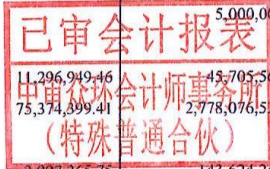 5,000,0
已审会计报表
11,296,949.46 45,705,5
中审众环会计师事务所
75,374,399.41 2,778,076,5
（特殊普通合伙）